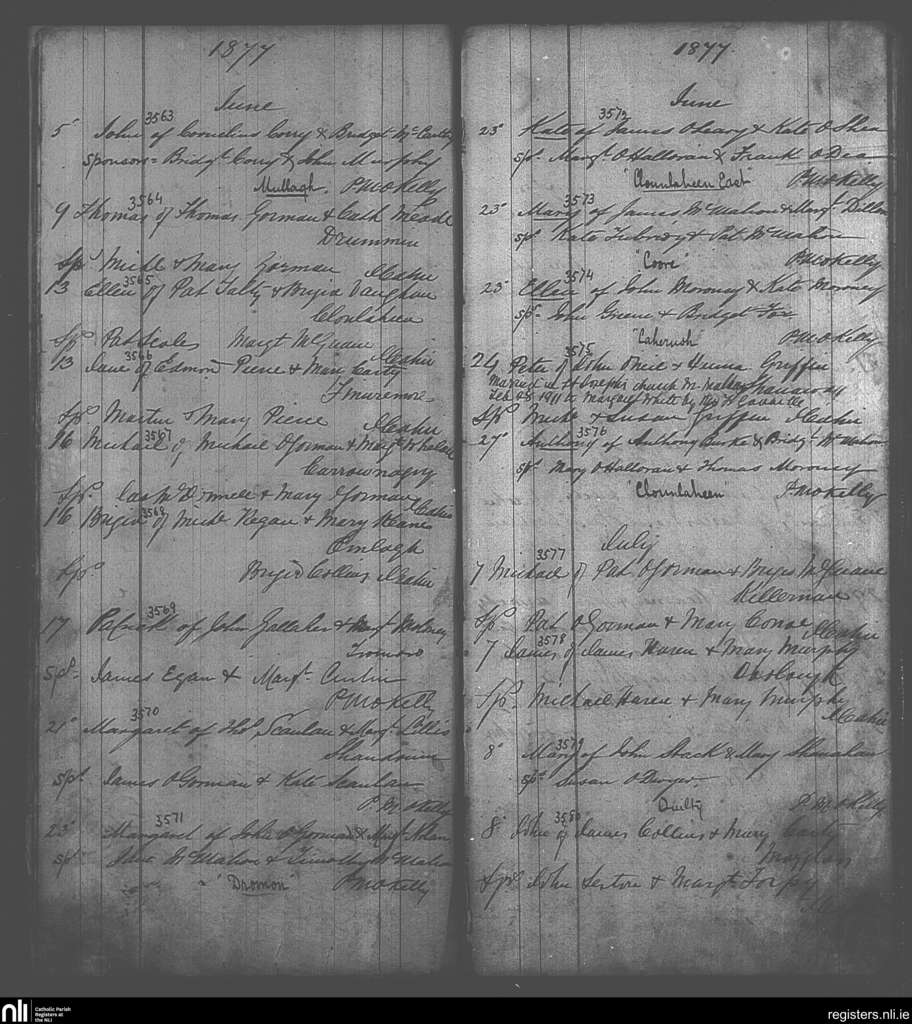 1877
June
3563
5 John of Cornelius Corry & Bridget McCarthy
Sponsors = Bridgt Corry & John Murphy
Mullagh. P. McKelly
3564
9 Thomas of Thomas Gorman & Cath Meade
Drummin
Sps Michl & Mary Gorman
3565
13 Ellen of Pat Talty & Brigid Vaughan
Clonlaheen
Sps Pat Scales Margt McGuane
3566
13 Jane of Edmond Pierce & Mary Carty
Sps Martin & Mary Pierce
3567
16 Michael of Michael OGorman & Margt Whelan
Carrownagry
Sps. & Mary OGorman
3568
16 Brigid of Michl Regan & Mary Keane
Emlagh
Sps Brigid Collins
3569
17 Patrick of John Gallaher & Margt
Sps. James Egan & Margt
P McKelly
3570
21 Margaret of Thos Scanlan & Margt Lillis
Shandrum
Sps James OGorman & Kate Scanlan
P. McKelly
3571
23 Margaret of John OGorman & Margt Nolan
sps McMahon & Timothy McMahon
"Dromon" P McKelly
1877.
June
3572
23 Kate of James OLeary & Kate OShea
sps. Margt OHalloran & Frank ODea
"Clounlaheen East" P McKelly
3573
23 Mary of James McMahon & Margt Dillon
sps Kate Tubridy & Pat McMahon
"Coore" P. McKelly
3574
23 Ellen of John Moroney & Kate Moroney
sps. John Greene & Bridget Fox
"Caherush" P. McKelly
3575
24 Peter of John ONeil & Griffin
Married in St Josephs church M. Malbay
Feb 28 1911 to Margaret White by
Sps Michl & Susan Griffin
3576
27 Anthony of Anthony Burke & Bridgt McMahon
sps. Mary OHalloran & Thomas Moroney
"Clounlaheen" P McKelly
July
3577
7 Michael of Pat OGorman & Brigid McGuane
Killernan
Sps Pat OGorman & Mary Conor
3578
7 James of James Haren & Mary Murphy
Sps. Michael Haren & Mary Murphy
3579
8 Mary of John Stack & Mary Shanahan
sps Susan ODwyer
Quilty P McKelly
3580
8 John of James Collins & Mary Carty
Moyglass
Sps John Sexton & Margt Torpy
nli
Catholic Parish
Registers at
the NLI
registers.nli.ie